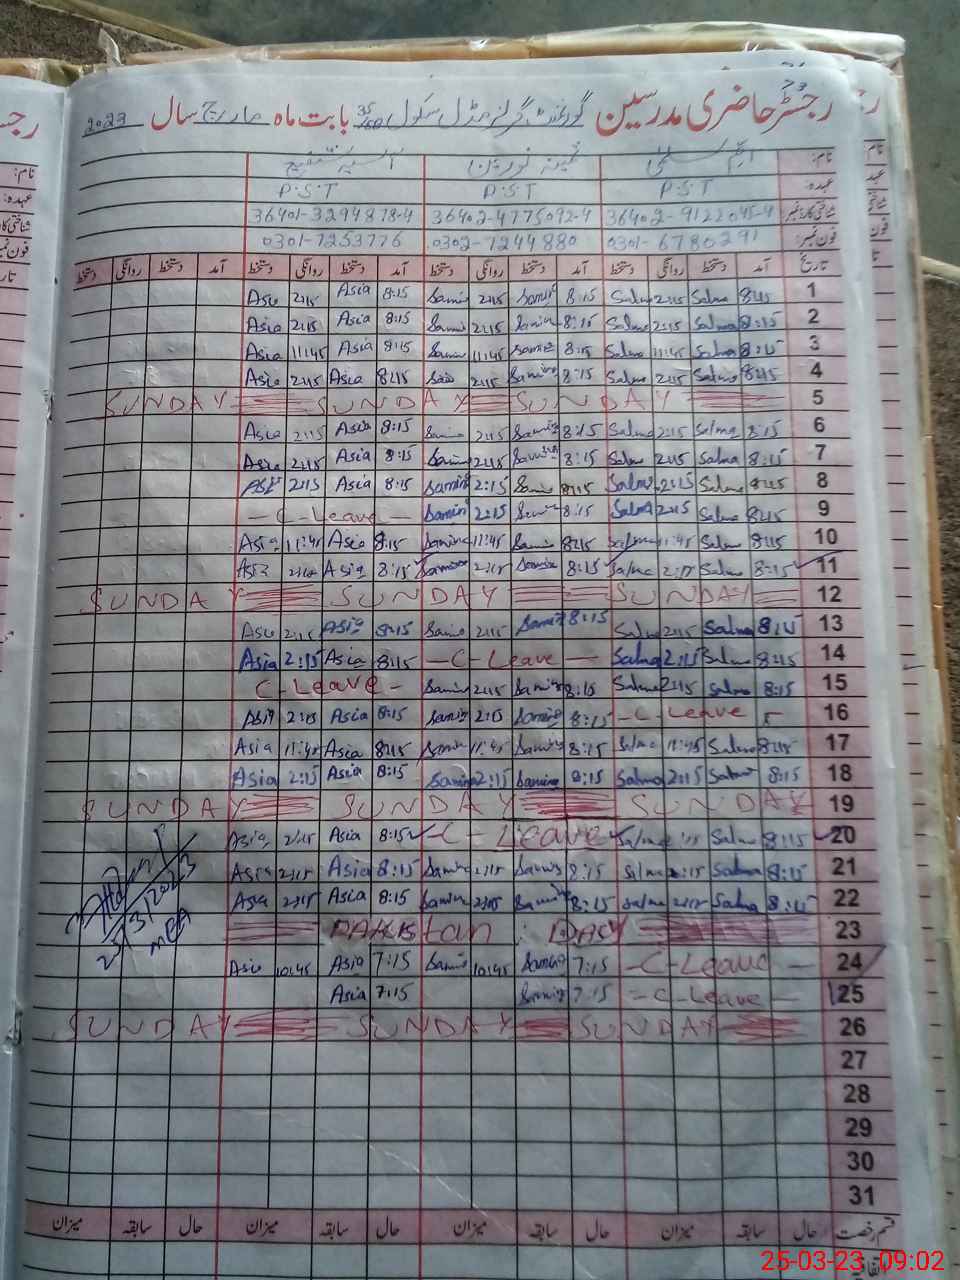 رجسٹر حاضری مدرسین گورنمنٹ گرلز مڈل سکول 35/SP بابت ماہ مارچ سال 2023
نام: ام سلمیٰ ثمینہ نورین آسیہ شفیع
عہدہ: P.S.T P.S.T P.S.T
شناختی کارڈ نمبر 36402-9122045-4 36402-4775092-4 36401-3294878-4
فون نمبر: 0301-6780291 0302-7244880 0301-7253776
تاریخ آمد دستخط روانگی دستخط آمد دستخط روانگی دستخط آمد دستخط روانگی دستخط آمد دستخط روانگی دستخط
1 8:15 Salma 2:15 Salma 8:15 Samin 2:15 Samin 8:15 Asia 2:15 Asia
2 8:15 Salma 2:15 Salma 8:15 Samina 2:15 Samin 8:15 Asia 2:15 Asia
3 8:15 Salma 11:45 Salma 8:15 Samina 11:45 Samin 8:15 Asia 11:45 Asia
4 8:15 Salma 2:15 Salma 8:15 Samina 2:15 8:15 Asia 2:15 Asia
5 SUNDAY SUNDAY SUNDAY
6 8:15 Salma 2:15 Salma 8:15 Samina 2:15 Samina 8:15 Asia 2:15 Asia
7 8:15 Salma 2:15 Salma 8:15 Samina 2:15 Samina 8:15 Asia 2:15 Asia
8 8:15 Salma 2:15 Salma 8:15 Samina 2:15 Samina 8:15 Asia 2:15 Asia
9 8:15 Salma 2:15 Salma 8:15 Samina 2:15 Samina - C-Leave -
10 8:15 Salma 11:45 Salma 8:15 Samina 11:45 Samina 8:15 Asia 11:45 Asia
11 8:15 Salma 2:15 Salma 8:15 Samina 2:15 Samina 8:15 Asia 2:15 Asia
12 SUNDAY SUNDAY SUNDAY
13 8:15 Salma 2:15 Salma 8:15 Samina 2:15 Samina 8:15 Asia 2:15 Asia
14 8:15 Salma 2:15 Salma - C-Leave - 8:15 Asia 2:15 Asia
15 8:15 Salma 2:15 Salma 8:15 Samina 2:15 Samina C-Leave -
16 - C-Leave - 8:15 Samina 2:15 Samina 8:15 Asia 2:15 Asia
17 8:15 Salma 11:45 Salma 8:15 Samina 11:45 Samina 8:15 Asia 11:45 Asia
18 8:15 Salma 2:15 Salma 8:15 Samina 2:15 Samina 8:15 Asia 2:15 Asia
19 SUNDAY SUNDAY SUNDAY
20 8:15 Salma 2:15 Salma C-Leave 8:15 Asia 2:15 Asia
21 8:15 Salma 2:15 Salma 8:15 Samina 2:15 Samina 8:15 Asia 2:15 Asia
22 8:15 Salma 2:15 Salma 8:15 Samina 2:15 Samina 8:15 Asia 2:15 Asia
25/3/2023
MEA
23 PAKIStan DAY
24 - C-Leave - 7:15 Samina 10:45 Samin 7:15 Asia 10:45 Asia
25 - C-Leave - 7:15 Samina 7:15 Asia
26 SUNDAY SUNDAY SUNDAY
27
28
29
30
31
قسم رخصت حال سابقہ میزان حال سابقہ میزان حال سابقہ میزان حال سابقہ میزان
25-03-23 09:02